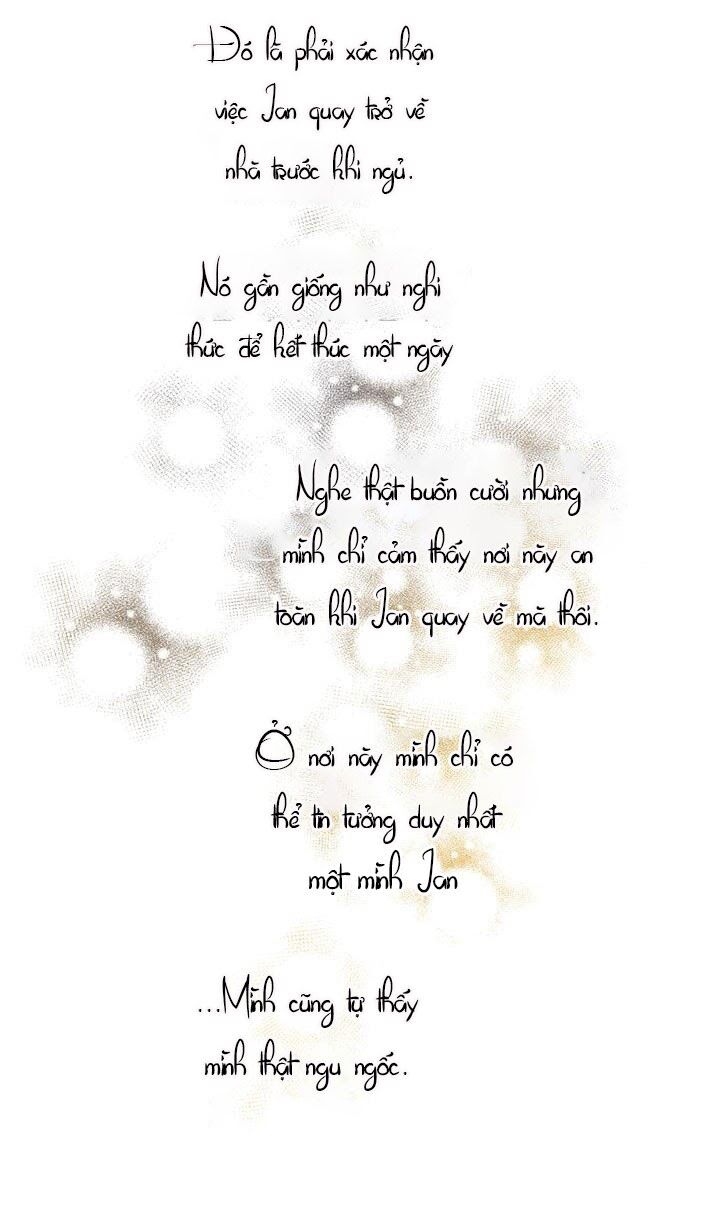 Đó là phải xác nhận
việc Ian quay trở về
nhà trước khi ngủ.
Nó gần giống như nghi
thức để kết thúc một ngày
Nghe thật buồn cười nhưng
mình chỉ cảm thấy nơi này an
toàn khi Ian quay về mà thôi.
Ở nơi này mình chỉ có
thể tin tưởng duy nhất
một mình Ian
...Mình cũng tự thấy
mình thật ngu ngốc.